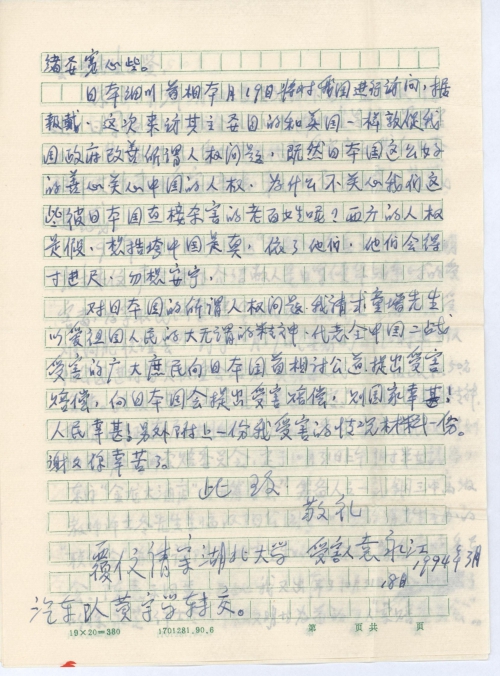 绪要宽心些。
日本细川首相本月19日将对我国进行访问，据
报载，这次来访其主要目的和美国一样敦促我
国政府改善所谓人权问题，既然日本国这么好
的善心关心中国的人权，为什么不关心我们这
些被日本国直接杀害的老百姓呢？西方的人权
是假，想搞垮中国是真，依了他们，他们会得
寸进尺，勿想安宁，
对日本国的所谓人权问题我请求童增先生
以爱祖国人民的大无谓的精神，代表全中国二战
受害的广大庶民向日本国首相讨公道提出受害
赔偿，向日本国会提出受害赔偿，则国家幸甚！
人民幸甚！另外附上一份我受害的情况材料一份。
谢谢你辛苦了。
此致
敬礼
覆信请寄湖北大学 受害人袁永江
1994年3月
18日
汽车队黄字学转交。
19×20=380 1701281.90.6 第 页共 页